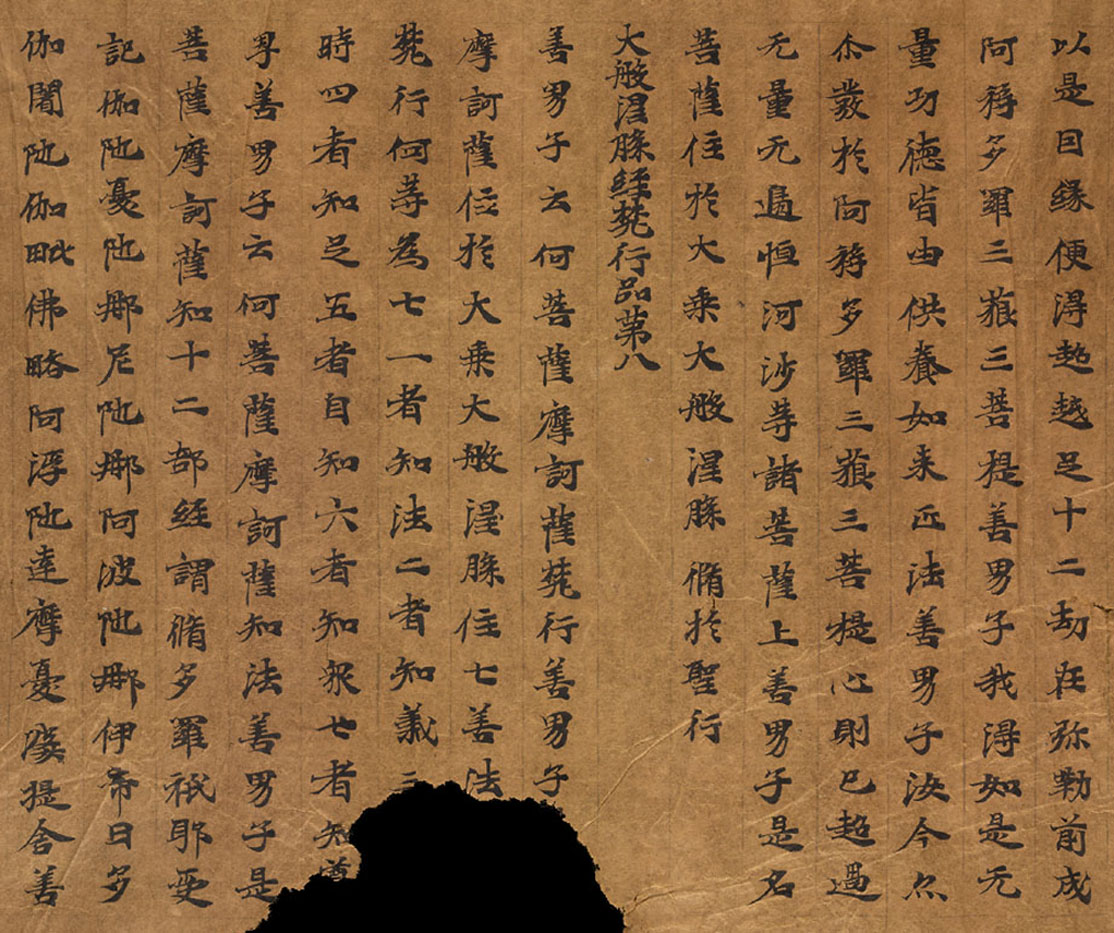 以是因緣便得超越足十二劫在弥勒前成
阿耨多羅三藐三菩提善男子我得如是无
量功德皆由供養如来匹法善男子汝今亦
尒發於阿耨多羅三藐三菩提心則已超過
无量无邊恒河沙等諸菩薩上善男子是名
菩薩住於大乘大般涅槃脩於聖行
大般涅槃經梵行品第八
善男子云何菩薩摩訶薩梵行善男子
摩訶薩住於大乘大般涅槃住七善法
梵行何等為七一者知法二者知義三
時四者知足五者自知六者知衆七者知尊
卑善男子云何菩薩摩訶薩知法善男子是
菩薩摩訶薩知十二部經謂脩多羅祇耶受
記伽陁憂陁那尼陁那阿波陁那伊帝曰多
伽闍陁伽毗佛略阿浮陁達摩憂波提舍善